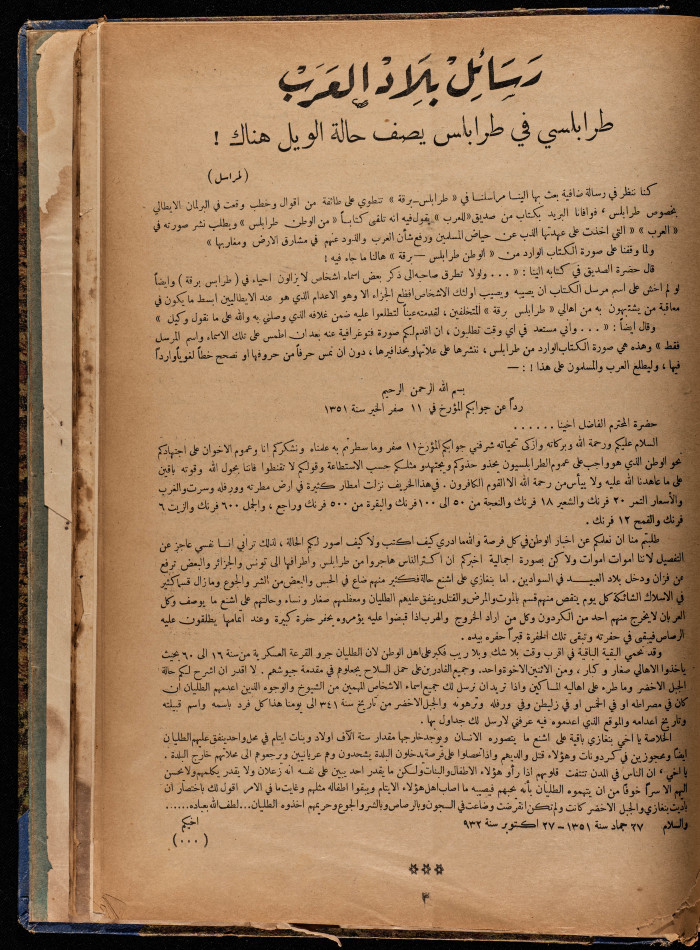 رَسَائِلْ بِلَادْ العَرَبْ
طرابلسي في طرابلس يصف حالة الويل هناك !
( لمراسل )
كنا ننظر في رسالة ضافية بعث بها الينا مراسلنا في « طرابلس-برقة » تنطوي على طائفة من اقوال وخطب وقعت في البرلمان الايطالي
بخصوص طرابلس ، فوافانا البريد بكتاب من صديق « للعرب » يقول فيه انه تلقى كتاباً « من الوطن طرابلس » ويطلب نشر صورته في
« العرب » « التي اخذت على عهدتها الذب عن حياض المسلمين ورفع شأن العرب والذود عنهم في مشارق الارض ومغاربها »
ولما وقفنا على صورة الكتاب الوارد من « الوطن طرابلس — برقة » هالنا ما جاء فيه !
قال حضرة الصديق في كتابه الينا : « . . . ولولا تطرق صاحبه الى ذكر بعض اسماء اشخاص لا يزالون احياء في ( طرابس برقة ) وايضاً
لو لم اخش على اسم مرسل الكتاب ان يصيبه ويصيب اولئك الاشخاص افظع الجزاء الا وهو الاعدام الذي هو عند الايطاليين ابسط ما يكون في
معاقبة من يشتبهون به من اهالي « طرابلس برقة » المتخلفين ، لقدمته عيناً لتطلعوا عليه ضمن غلافه الذي وصلني به والله على ما نقول وكيل »
وقال ايضاً : « . . . وأني مستعد في اي وقت تطلبون ، ان اقدم لكم صورة فتوغرافية عنه بعد ان اطمس على تلك الاسماء واسم المرسل
فقط » وهذه هي صورة الكتاب الوارد من طرابلس ، ننشرها على علاتها وبحذافيرها ، دون ان نمس حرفاً من حروفها او نصحح خطأ لغوياً وارداً
فيها ، وليطلع العرب والمسلمون على هذا ! : —
بسم الله الرحمن الرحيم
رداً عن جوابكم المؤرخ في ١١ صفر الخير سنة ١٣٥١
حضرة المحترم الفاضل اخينا . . . . . .
السلام عليكم ورحمة الله وبركاته وازكى تحياته شرفني جوابكم المؤرخ ١١ صفر وما سطرتم به علمناه ونشكركم انا وعموم الاخوان على اجتهادكم
نحو الوطن الذي هو واجب على عموم الطرابلسيون يحذو حذوكم ويجتهدو مثلكم حسب الاستطاعة وقولكم لا تقنطوا فاننا بحول الله وقوته باقين
على ما عاهدنا الله عليه ولا ييأس من رحمة الله الا القوم الكافرون . في هذا الخريف نزلت امطار كثيرة في ارض مصرته وورفله وسرت والغرب
والأسعار التمر ٢٠ فرنك والشعير ١٨ فرنك والنعجة من ٥٠ الى ١٠٠ فرنك والبقرة من ٥٠٠ فرنك وراجع ، والجمل ٦٠٠ فرنك والزيت ٦
فرنك والقمح ١٢ فرنك .
طلبتم منا ان نعلمكم عن اخبار الوطن في كل فرصة والله ما ادري كيف اكتب ولا كيف اصور لكم الحالة ، لذلك تراني انسا نفسي عاجز عن
التفصيل لاننا اموات اموات ولاكن بصورة اجمالية اخبركم ان اكثر الناس هاجروا من طرابلس واطرافها الى تونس والجزائر والبعض ترفع
من فزان ودخل بلاد العبيد في السوادين . اما بنغازي على اشنع حالة فكثير منهم ضاع في الحبس والبعض من الشر والجوع وما زال قسما كثير
في الاسلاك الشائكة كل يوم ينقص منهم قسم بالموت والمرض والقتل وينفق عليهم الطليان ومعظمهم صغار ونساء وحالتهم على اشنع ما يوصف وكل
العربان لا يخرج منهم احد من الكردون وكل من اراد الخروج والهرب اذا قبضوا عليه يؤمروه بحفر حفرة كبيرة وعند اتمامها يطلقون عليه
الرصاص فيبقى في حفرته وتبقى تلك الحفرة قبراً حفره بيده .
وقد نمحي البقية الباقية في اقرب وقت بلا شك وبلا ريب فكبر على اهل الوطن لان الطليان جرو القرعة العسكرية من سنة ١٦ الى ٦٠ بحيث
ياخذوا الاهالي صغار و كبار ، ومن الاثنين الاخوة واحد. وجميع القادرين على حمل السلاح يجعلوهم في مقدمة جيوشهم . لا اقدر ان اشرح لكم حالة
الجبل الاخضر وما طره على اهاليه المساكين واذا تريد ان نرسل لك جميع اسماء الاشخاص المهمين من الشيوخ والوجوه الذين اعدمهم الطليان ان
كان في مصراطه او في الخمس او في زليطن وفي ورفله وترهونه والجبل الاخضر من تاريخ سنة ٣٤١ الى يومنا هذا كل فرد باسمه واسم قبيلته
وتاريخ اعدامه والموقع الذي اعدموه فيه عرفني لارسل لك جداول بها .
الخلاصة يا اخي بنغازي باقية على اشنع ما يتصوره الانسان ويوجد خارجها مقدار ستة الآف اولاد وبنات ايتام في محل واحد ينفق عليهم الطليان
ايضاً ومحجوزين في كردونات وهؤلاء قتل والديهم واذا تحصلوا على فرصة يدخلون البلدة يشحدون وهم عريانين ويرجعوهم الى محلاتهم خارج البلدة .
يا اخي ، ان الناس في المدن تتفتت قلوبهم اذا رأو هؤلاء الاطفال والبنات ولكن ما يقدر احد يبين على نفسه انه زعلان ولا يقدر يكلمهم ولا يحسن
اليهم الا سراً خوفاً من ان يتهموه الطليان بأنه محبهم فيصيبه ما اصاب اهل هؤلاء الايتام ويبقوا اطفاله مثلهم وغاية ما في الامر اقول لك باختصار ان
بادية بنغازي والجبل الاخضر كانت ولم تكن انقرضت وضاعت في السجون وبالرصاص وبالشر والجوع وحريمهم اخذوه الطليان...لطف الله بعباده......
والسلام ٢٧ جماد سنة ١٣٥١ – ٢٧ اكتوبر سنة ٩٣٢
اخيكم
( ٠٠٠ )
٣